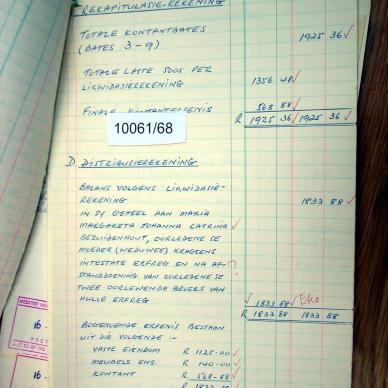 REKAPITULASIE-REKENING
TOTALE KONTANTBATES 1925 36
(BATES 3-9)
TOTALE LASTE SOOS PER 1356 48
LIKWIDASIEREKENING
FINALE KONTANTERFENIS 568 88
R 1925 36 1925 36
10061/68
D. DISTRIBUSIEREKENING
BALANS VOLGENS LIKWIDASIE-
REKENING 1833 88
IN SY GEHEEL AAN MARIA
MARGARETA JOHANNA CATRINA
BEZUIDENHOUT, OORLEDENE SE
MOEDER (WEDUWEE) KRAGTENS
INTESTATE ERFREG EN NA AF- ?
STANDDOENING VAN OORLEDENE SE
TWEE OORLEWENDE BROERS VAN
HULLE ERFREG 1833 88
R 1833 88 1833 88
BOGENOEMDE ERFENIS BESTAAN
UIT DIE VOLGENDE :-
VASTE EIENDOM R 1125-00
MEUBELS ENS. R 140-00
KONTANT R 568-88
R 1833-88
16
16